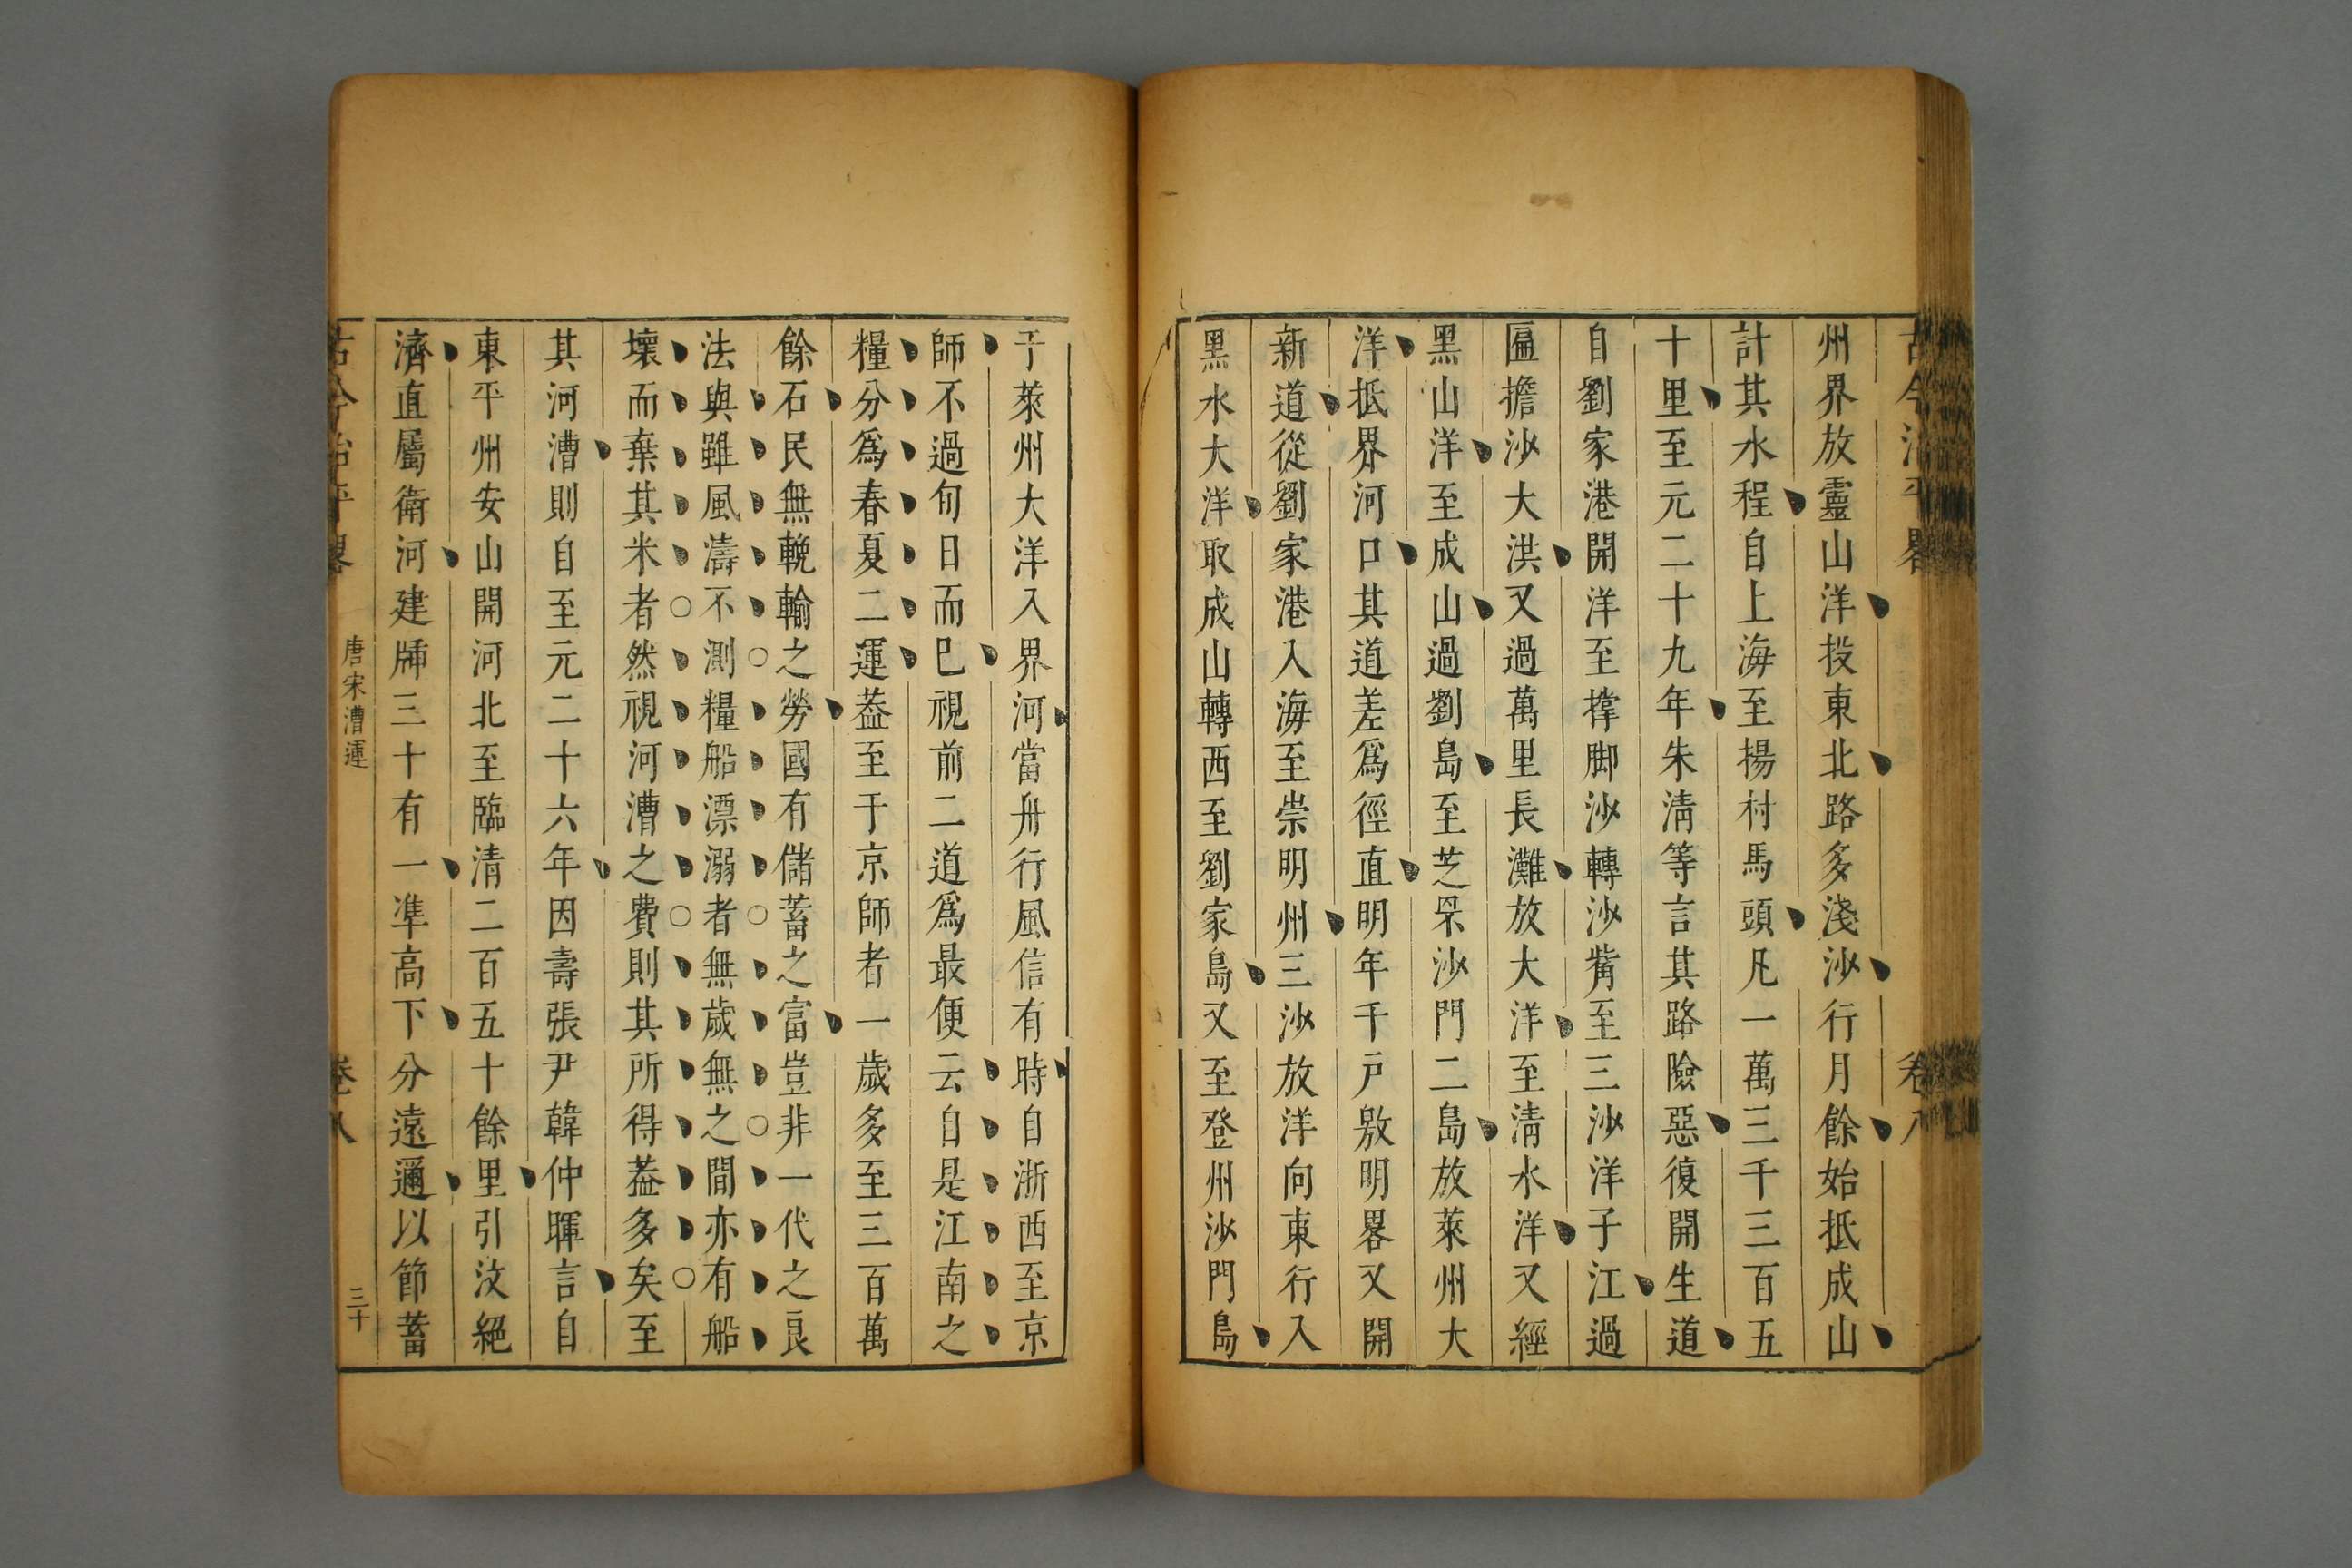 州界放靈山洋投東北路多淺沙行月餘始抵成山
計其水程自上海至揚村馬頭凡一萬三千三百五
十里至元二十九年朱淸等言其路險惡復開生道
自劉家港開洋至撑脚沙轉沙觜至三沙洋子江過
匾擔沙大洪又過萬里長灘放大洋至淸水洋又經
黑山洋至成山過劉島至芝罘沙門二島放萊州大
洋抵界河口其道差爲徑直明年千戸殷明畧又開
新道從劉家港入海至崇明州三沙放洋向東行入
黑水大洋取成山轉西至劉家島又至登州沙門島
于萊州大洋入界河當舟行風信有時自浙西至京
師不過旬日而已視前二道爲最便云自是江南之
糧分爲春夏二運葢至于京師者一歲多至三百萬
餘石民無輓輸之勞國有儲蓄之富豈非一代之良
法與雖風濤不測糧船漂溺者無歲無之間亦有船
壞而棄其米者然視河漕之費則其所得葢多矣至
其河漕則自至元二十六年因壽張尹韓仲暉言自
東平州安山開河北至臨清二百五十餘里引汶絕
濟直屬衛河建牐三十有一準高下分遠邇以節蓄
古今治平畧 唐宋漕運 卷八 三十